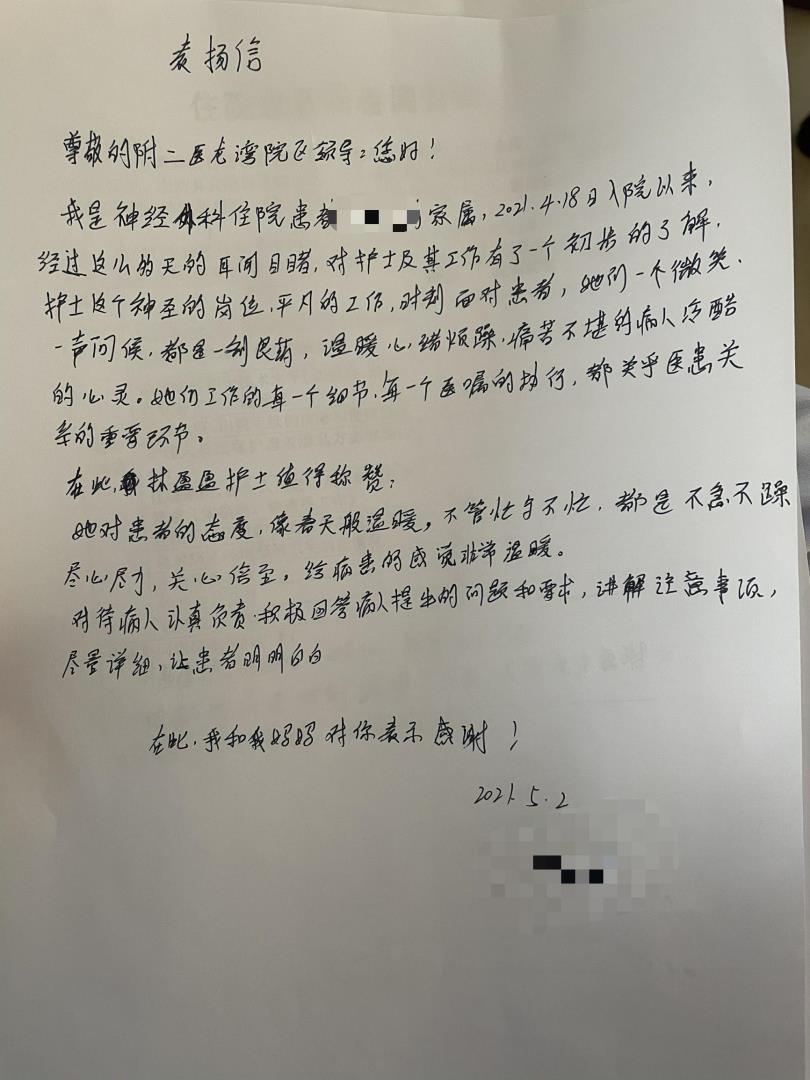 表扬信
尊敬的附二医龙湾院区领导：您好！
我是神经外科住院患者 家属，2021.4.18日入院以来，
经过这么多天的耳闻目睹，对护士及其工作有了一个初步的了解，
护士这个神圣的岗位，平凡的工作，时刻面对患者，她们一个微笑、
一声问候，都是一剂良药，温暖心绪烦躁、痛苦不堪的病人冷酷
的心灵。她们工作的每一个细节、每一个医嘱的执行，都关乎医患关
系的重要环节。
在此，林盈盈护士值得称赞：
她对患者的态度，像春天般温暖。不管忙与不忙，都是不急不躁
尽心尽力，关心倍至。给病患的感觉非常温暖。
对待病人认真负责.积极回答病人提出的问题和要求，讲解注意事项，
尽量详细，让患者明明白白
在此，我和我妈妈对你表示感谢！
2021.5.2